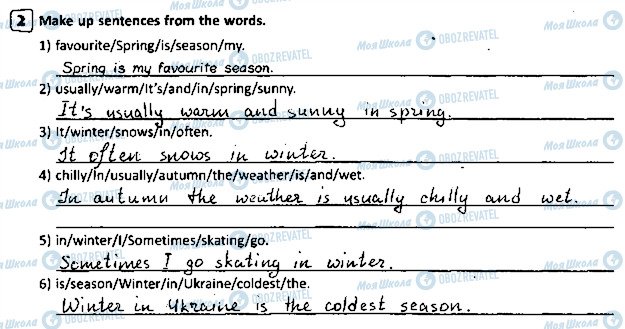 2 Make up sentences from the words.
1) favourite/Spring/is/season/my.
Spring is my favourite season.
2) usually/warm/It's/and/in/spring/sunny.
It's usually warm and sunny in spring.
3) It/winter/snows/in/often.
It often snows in winter.
4) chilly/in/usually/autumn/the/weather/is/and/wet.
In autumn the weather is usually chilly and wet.
5) in/winter/I/Sometimes/skating/go.
Sometimes I go skating in winter.
6) is/season/Winter/in/Ukraine/coldest/the.
Winter in Ukraine is the coldest season.
Моя Школа OBOZREVATEL